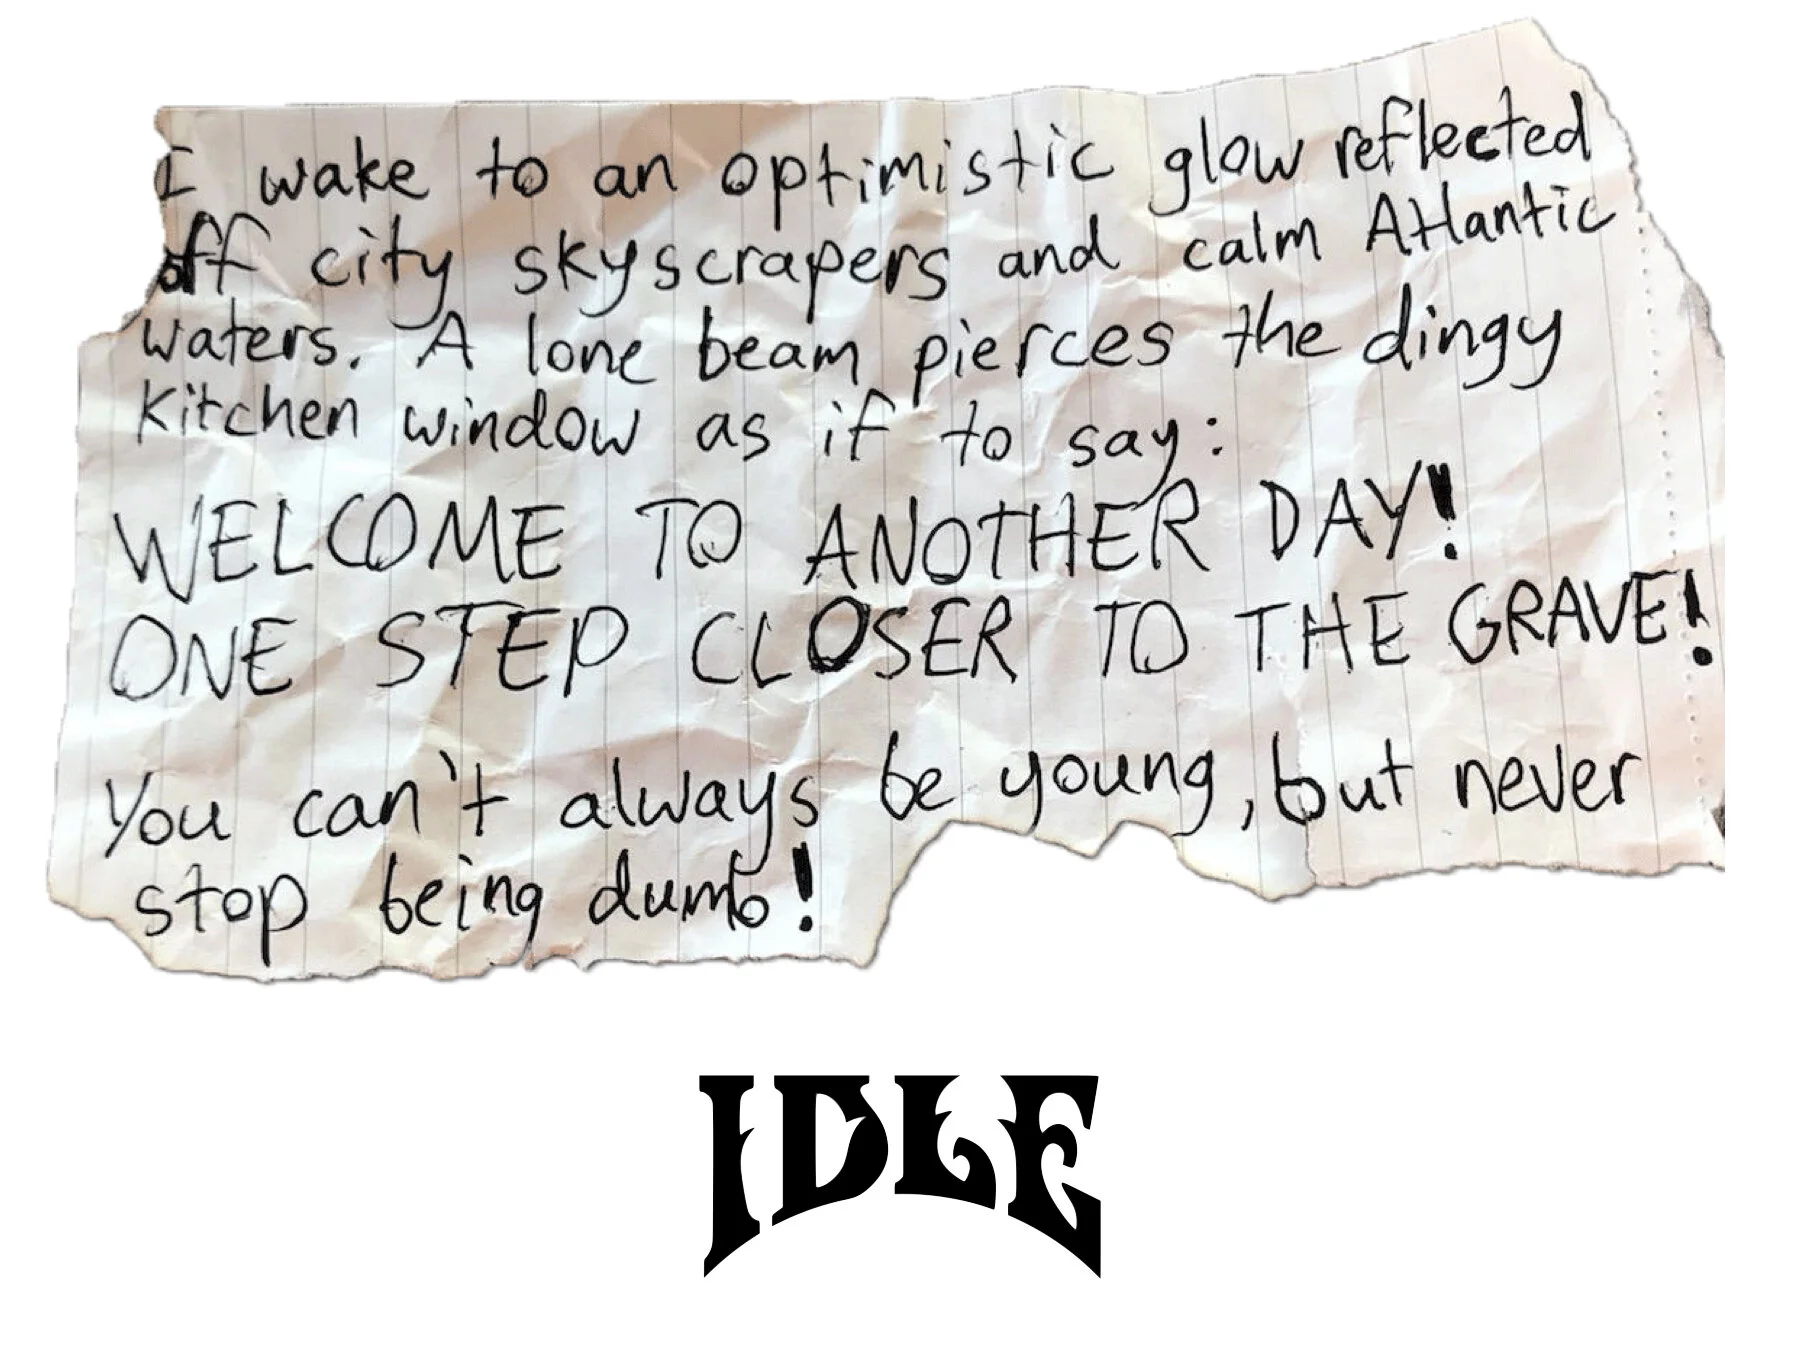 I wake to an optimistic glow reflected
off city skyscrapers and calm Atlantic
waters. A lone beam pierces the dingy
kitchen window as if to say:
WELCOME TO ANOTHER DAY!
ONE STEP CLOSER TO THE GRAVE!
You can't always be young, but never
stop being dumb!
IDLE